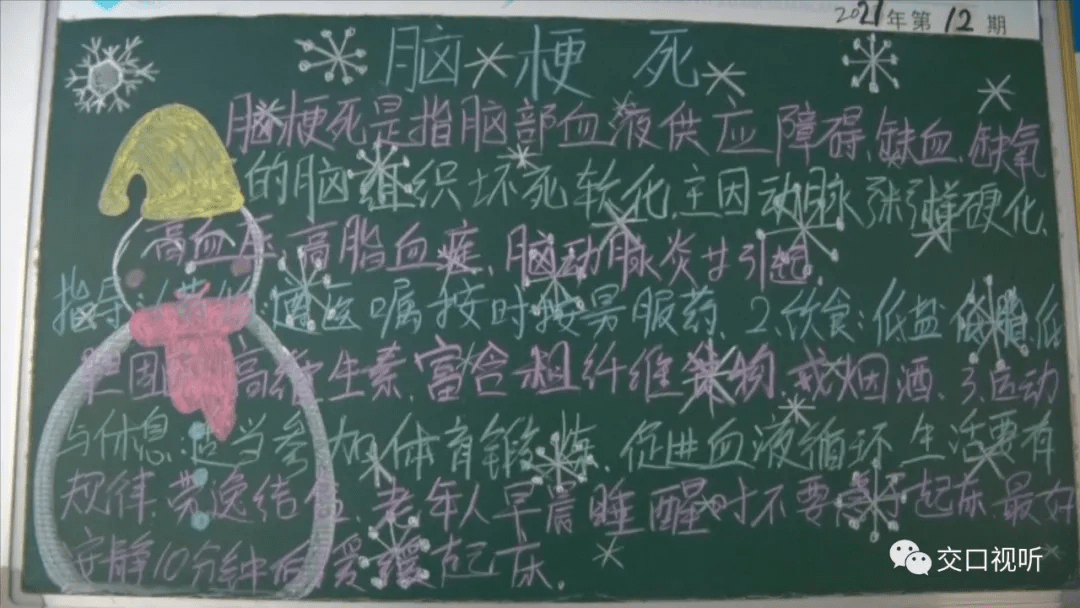 2021年第12期
脑梗死
脑梗死是指脑部血液供应障碍,缺血、缺氧
的脑组织坏死软化,主因动脉粥样硬化、
高血压、高脂血症、脑动脉炎引起。
指导:遵医嘱按时按量服药、2、饮食:低盐低脂、低
胆固醇高维生素,富含粗纤维食物,戒烟酒、3、运动
与休息:适当参加体育锻炼,促进血液循环生活要有
规律,劳逸结合,老年人早晨睡醒时不要急于起床,最好
安静10分钟后缓缓起床.
交口视听